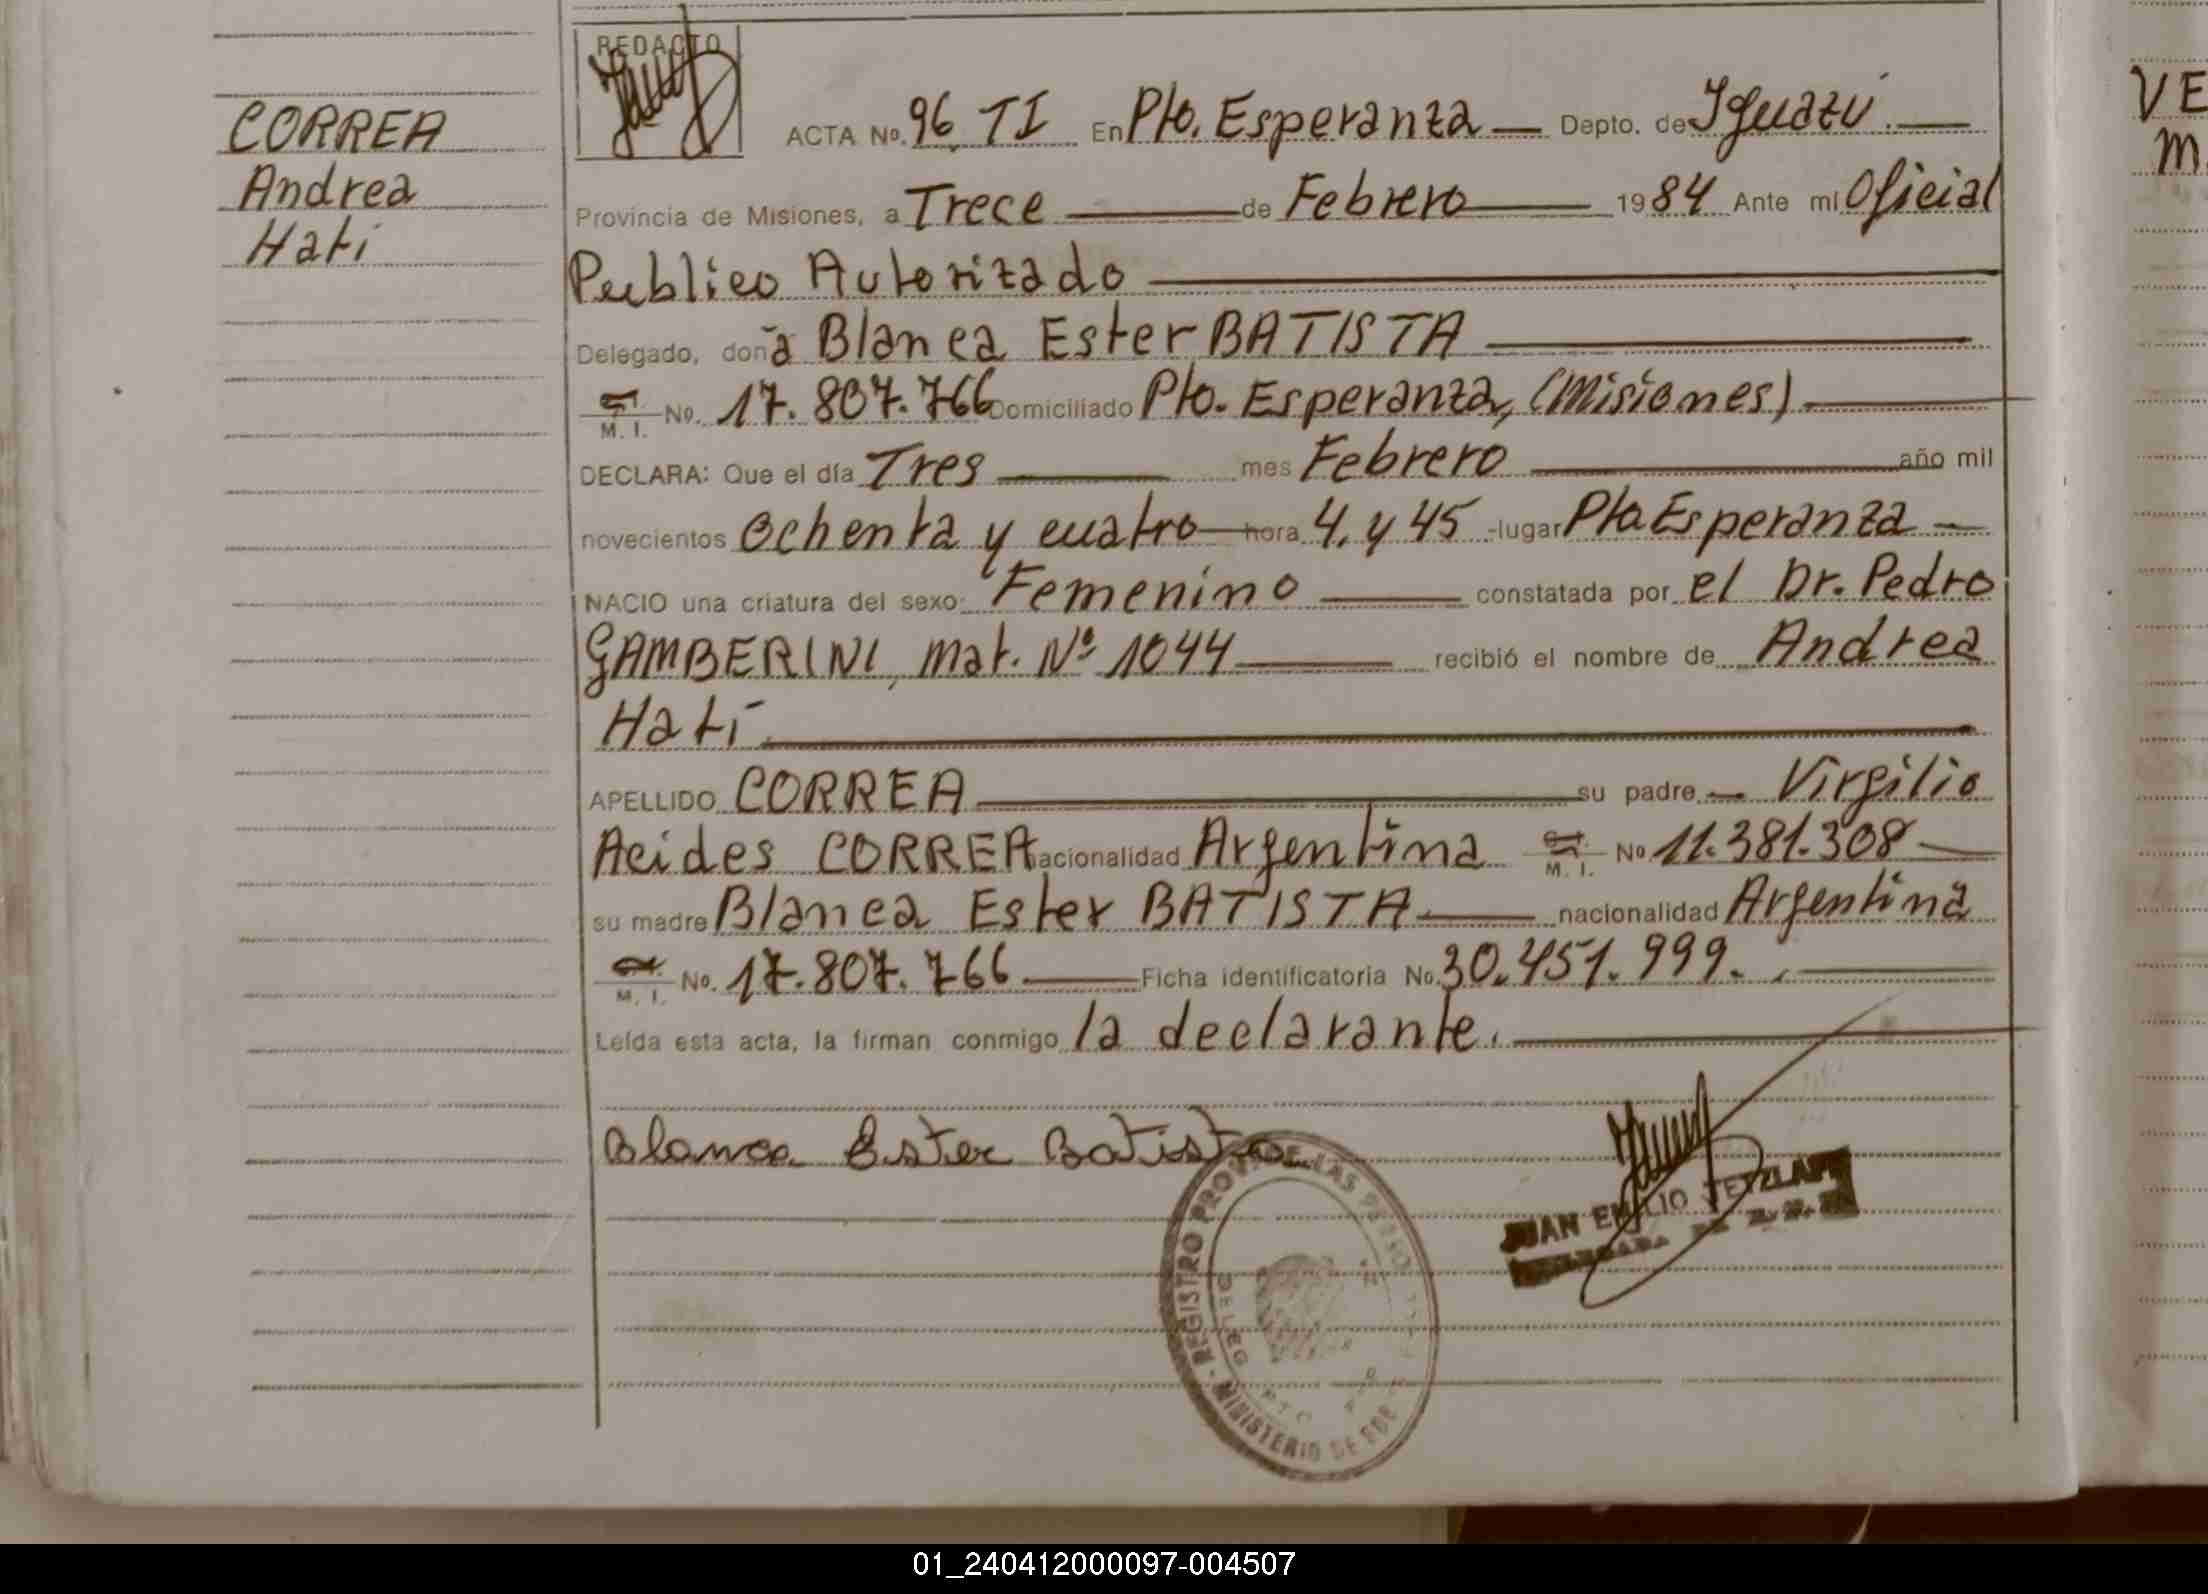 CORREA
Andrea
Hati
REDACTO
ACTA No. 96 TI En Pto. Esperanza Depto. de Iguazú.
Provincia de Misiones, a Trece de Febrero 1984 Ante mi Oficial
Publico Autorizado
Delegado, doña Blanca Ester BATISTA
M. I. No. 17.807.766 Domiciliado Pto. Esperanza, (Misiones)
DECLARA: Que el día Tres mes Febrero año mil
novecientos Ochenta y cuatro hora 4. y 45 lugar Pto Esperanza
NACIO una criatura del sexo: Femenino constatada por el Dr. Pedro
GAMBERINI, mat. Nº 1044 recibió el nombre de Andrea
Hatí
APELLIDO CORREA su padre Virgilio
Acides CORREA nacionalidad Argentina M. I. No 11.381.308
su madre Blanca Ester BATISTA nacionalidad Argentina
M. I. No. 17.807.766 Ficha identificatoria No. 30.451.999.
Leída esta acta, la firman conmigo la declarante.
Blanca Ester Batista
JUAN EMILIO
REGISTRO PROV. DE LAS
MINISTERIO DE
VE
M.
01_240412000097-004507